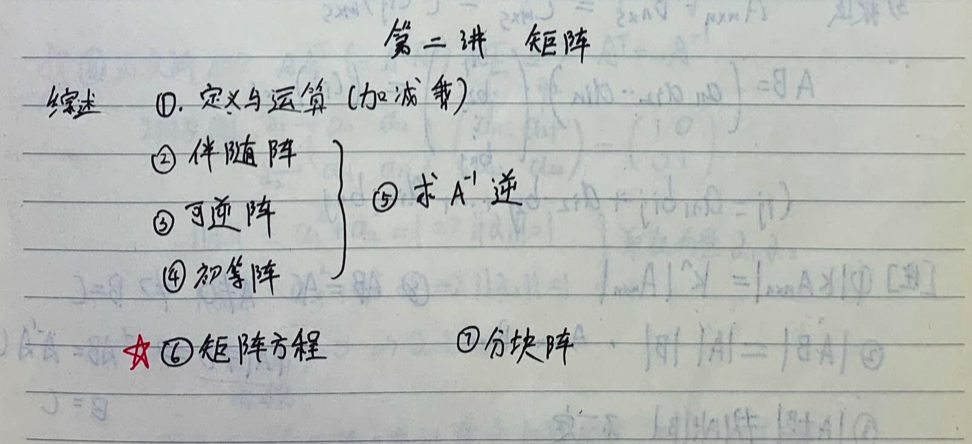 第二讲 矩阵
综述 ①. 定义与运算(加减乘)
② 伴随阵
③ 可逆阵
④ 初等阵
⑤ 求 A⁻¹ 逆
☆ ⑥ 矩阵方程 ⑦ 分块阵